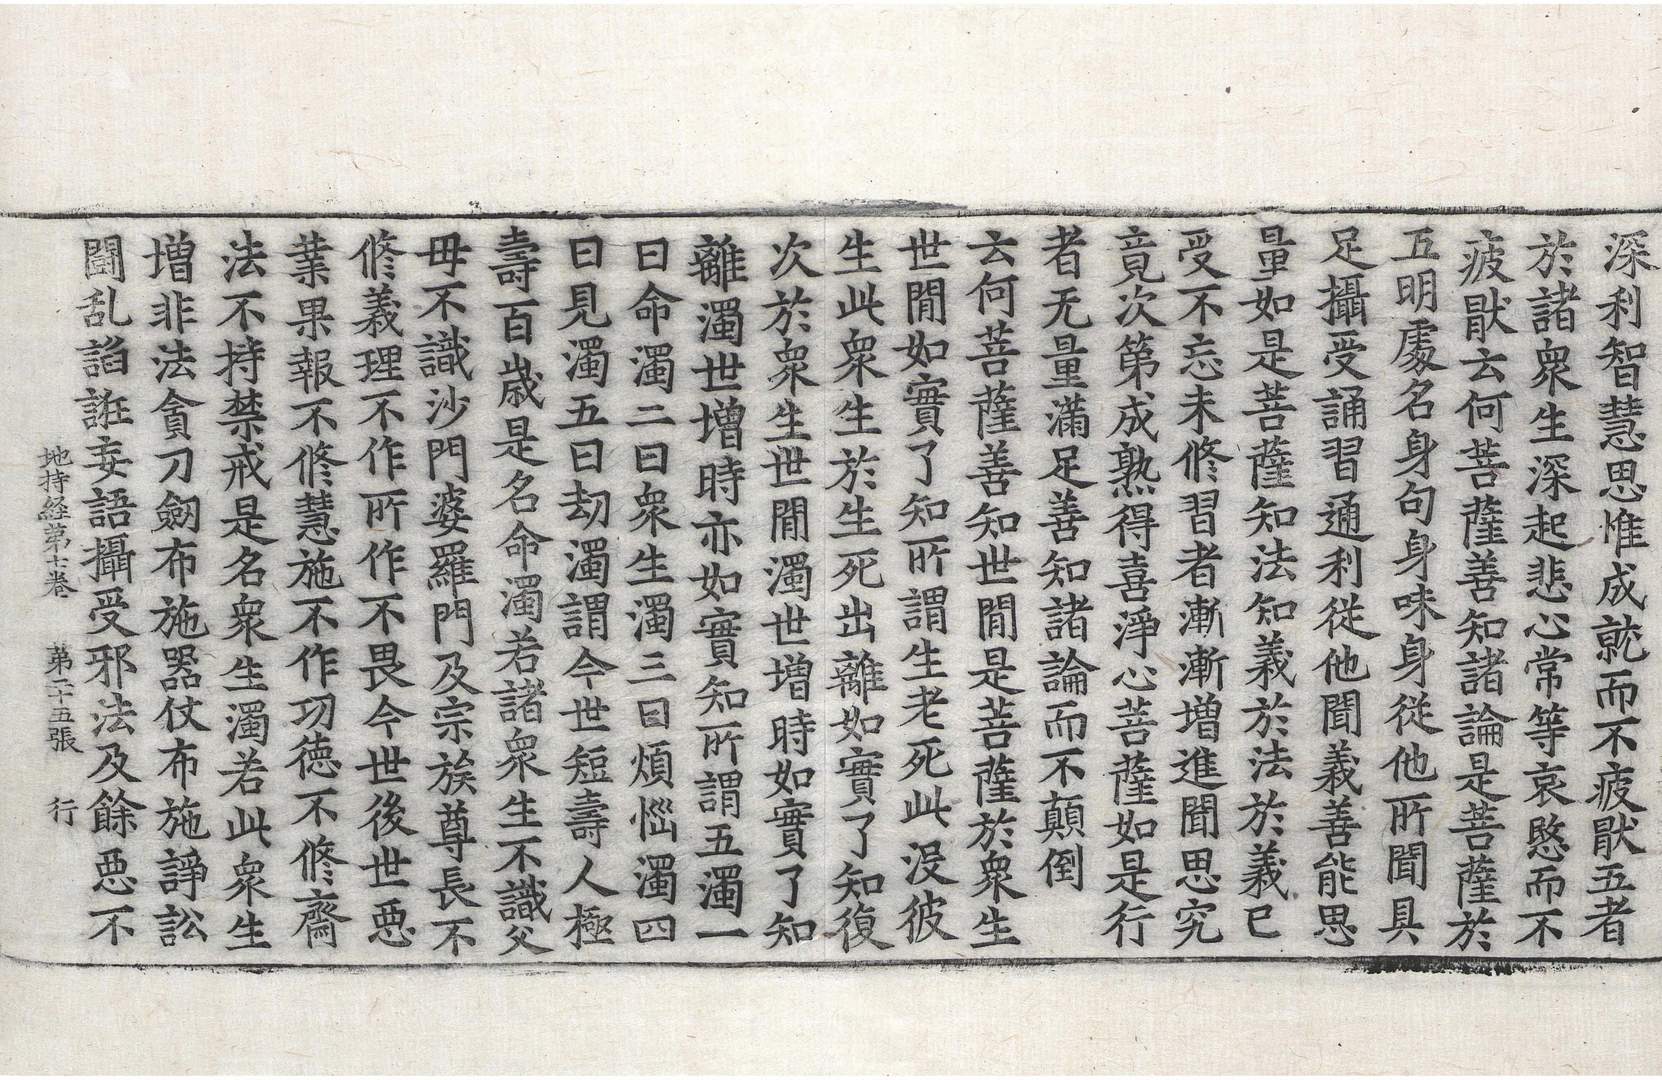 深利智慧思惟成就而不疲猒五者
於諸衆生深起悲心常等哀愍而不
疲猒云何菩薩善知諸論是菩薩於
五明處名身句身味身從他所聞具
足攝受誦習通利從他聞義善能思
量如是菩薩知法知義於法於義已
受不忘未修習者漸漸增進聞思究
竟次第成熟得喜淨心菩薩如是行
者无量滿足善知諸論而不顛倒
云何菩薩善知世閒是菩薩於衆生
世閒如實了知所謂生老死此没彼
生此衆生於生死出離如實了知復
次於衆生世閒濁世增時如實了知
離濁世增時亦如實知所謂五濁一
曰命濁二曰衆生濁三曰煩惱濁四
曰見濁五曰劫濁謂今世短壽人極
壽百歲是名命濁若諸衆生不識父
母不識沙門婆羅門及宗族尊長不
修義理不作所作不畏今世後世惡
業果報不修慧施不作功德不修齋
法不持禁戒是名衆生濁若此衆生
增非法貪刀劒布施器仗布施諍訟
鬪乱諂誑妄語攝受邪法及餘惡不
地持経第七卷 第二十五張 行